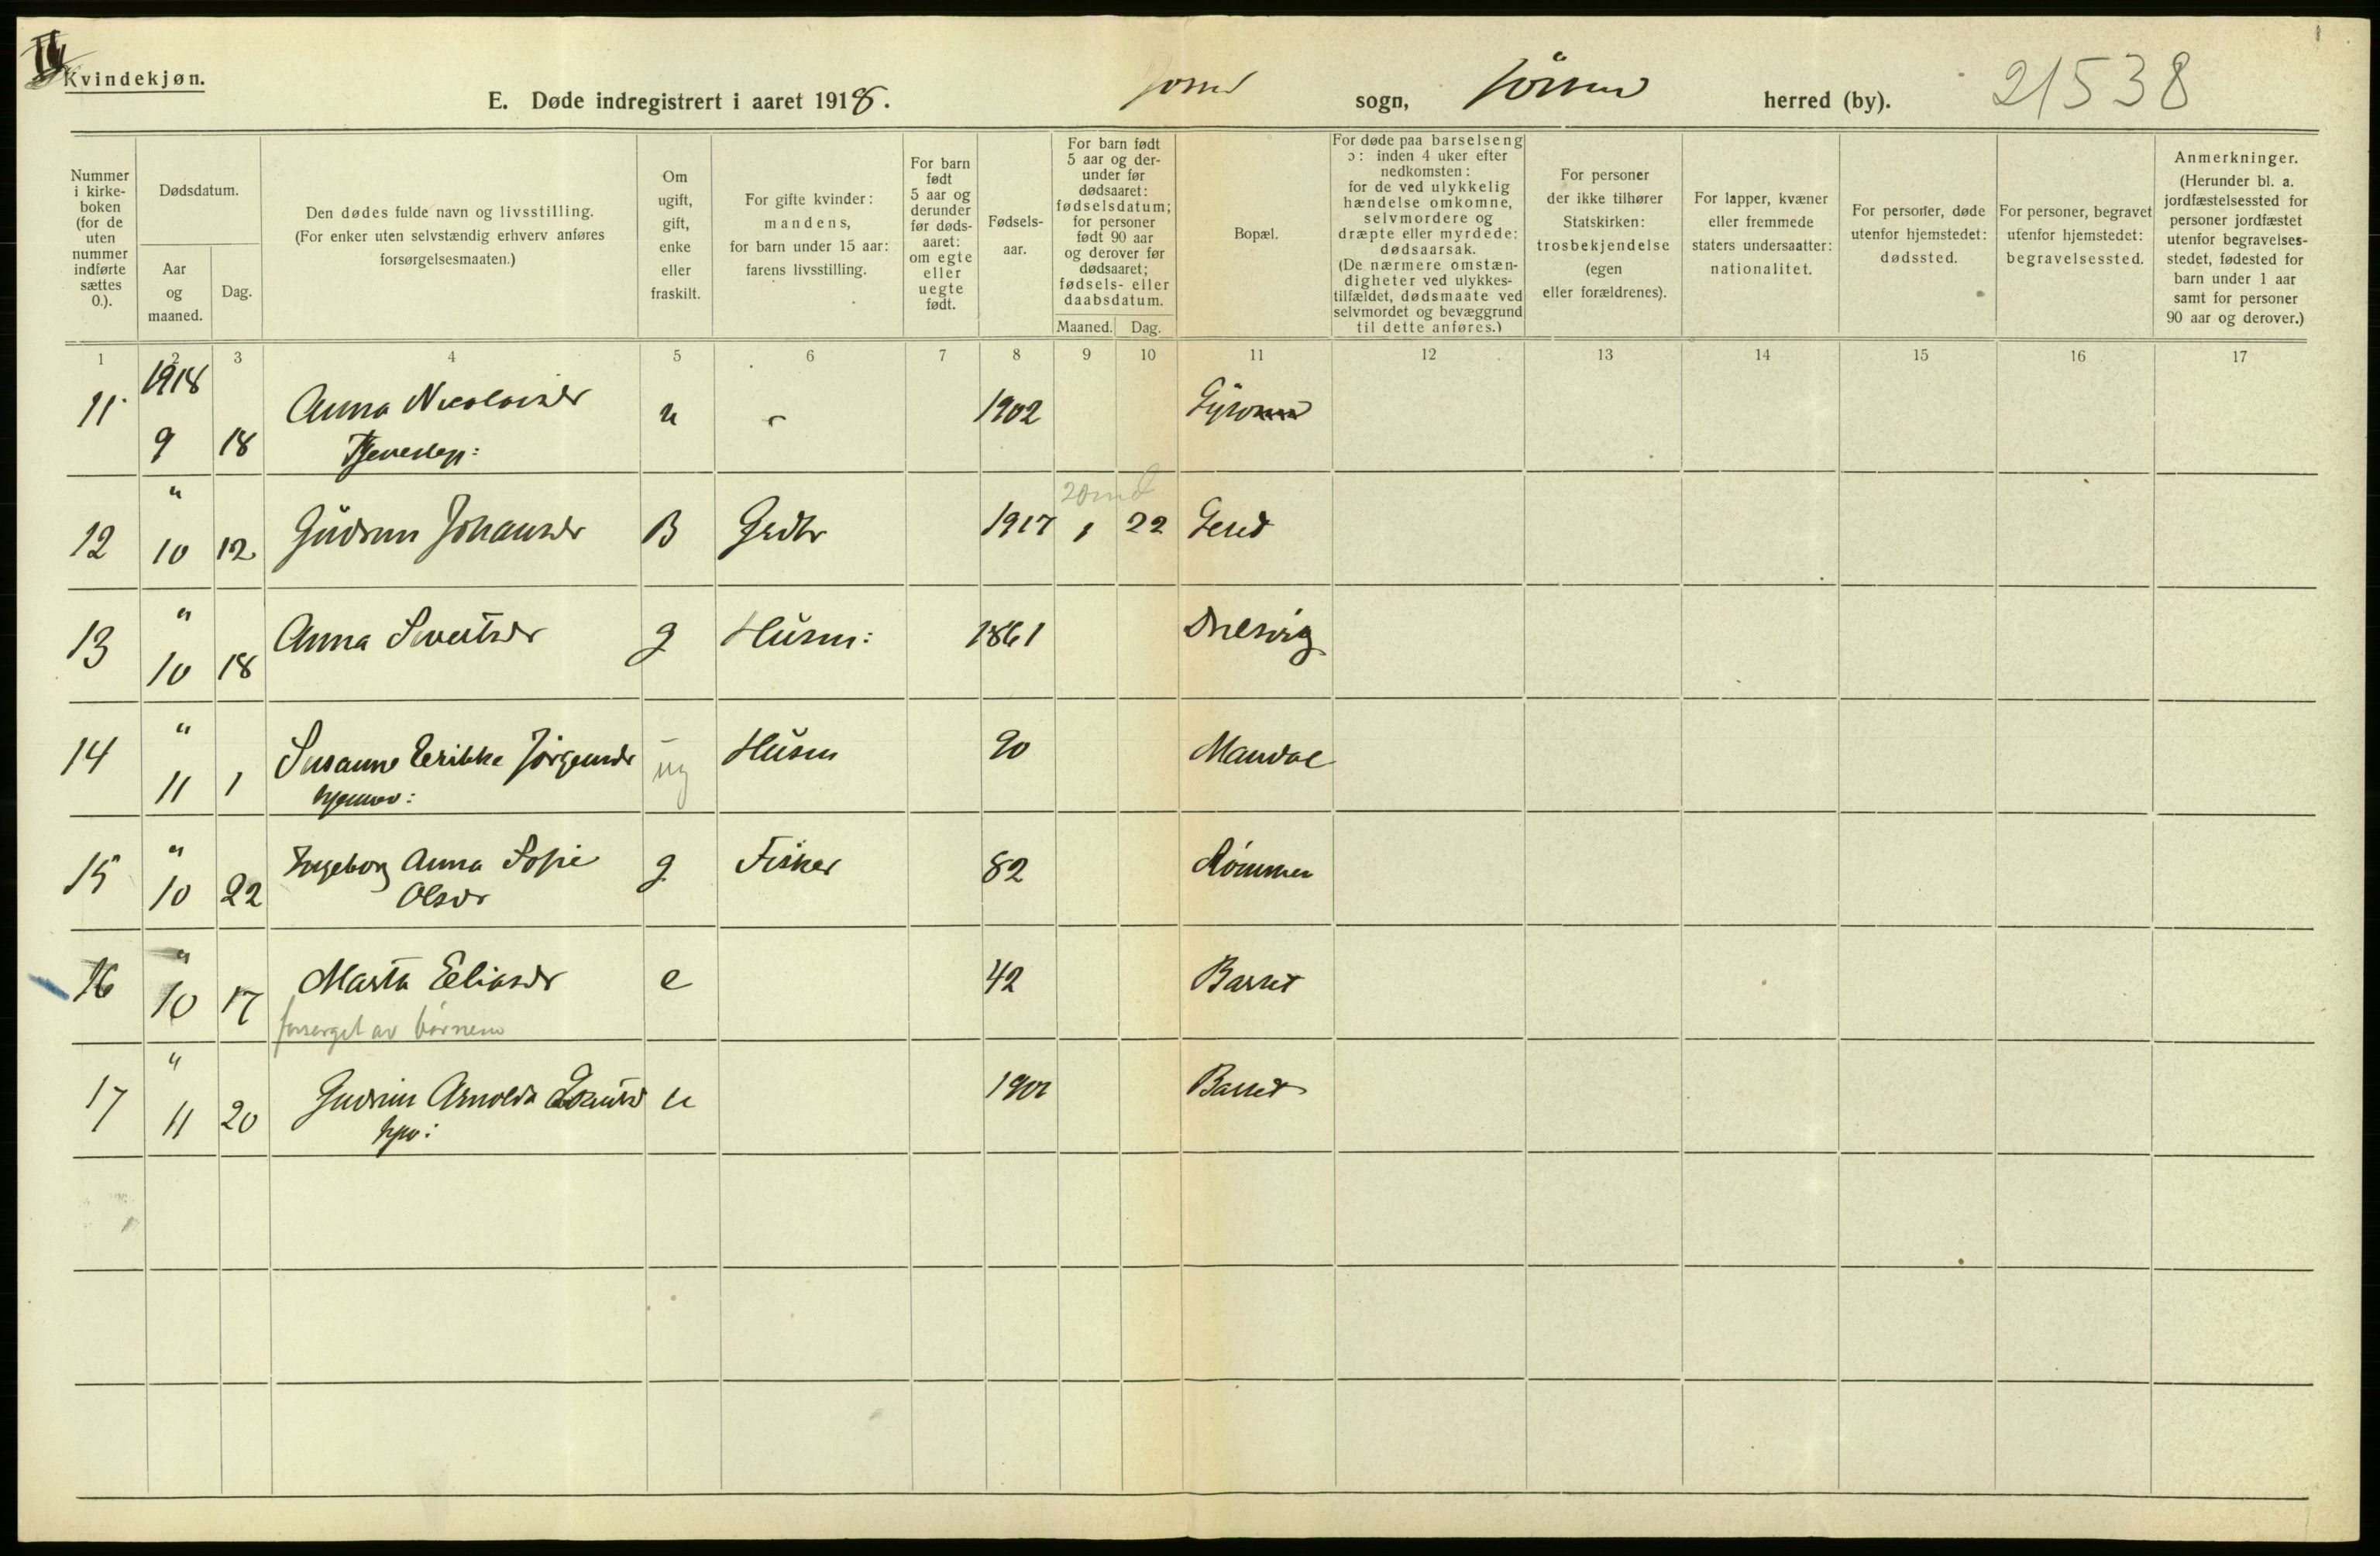 Kvindekjøn.
E. Døde indregistrert i aaret 1918. sogn, herred (by). 21538
Nummer i kirke-boken (for de uten nummer indførte sættes 0.).
Dødsdatum.
Aar og maaned.
Dag.
Den dødes fulde navn og livsstilling.
(For enker uten selvstændig erhverv anføres forsørgelsesmaaten.)
Om ugift, gift, enke eller fraskilt.
For gifte kvinder: mandens, for barn under 15 aar: farens livsstilling.
For barn født 5 aar og derunder før døds-aaret: om egte eller uegte født.
Fødsels-aar.
For barn født 5 aar og der-under før dødsaaret: fødselsdatum; for personer født 90 aar og derover før dødsaaret; fødsels- eller daabsdatum.
Maaned. Dag.
Bopæl.
For døde paa barselseng ɔ: inden 4 uker efter nedkomsten: for de ved ulykkelig hændelse omkomne, selvmordere og dræpte eller myrdede: dødsaarsak. (De nærmere omstæn-digheter ved ulykkes-tilfældet, dødsmaate ved selvmordet og bevæggrund til dette anføres.)
For personer der ikke tilhører Statskirken: trosbekjendelse (egen eller forældrenes).
For lapper, kvæner eller fremmede staters undersaatter: nationalitet.
For personer, døde utenfor hjemstedet: dødssted.
For personer, begravet utenfor hjemstedet: begravelsessted.
Anmerkninger. (Herunder bl. a. jordfæstelsessted for personer jordfæstet utenfor begravelses-stedet, fødested for barn under 1 aar samt for personer 90 aar og derover.)
1 2 3 4 5 6 7 8 9 10 11 12 13 14 15 16 17
1918
11 9 18 Anna Nicolaisdr u 1902
" 20 md
12 10 12 Gudrun Johansdr B Grdbr 1917 1 22
"
13 10 18 Anna Sivertsdr g Husm: 1861
"
14 11 1 Susanne Jørgensdr ug Husm 90 Mandal
"
15 10 22 Ingeborg Anna Sofie g Fisker 82
Olsdr
"
16 10 17 Marta Eliasdr e 42 Barset
forsørget av børnene
"
17 11 20 Gudrun Arnolda u Barset